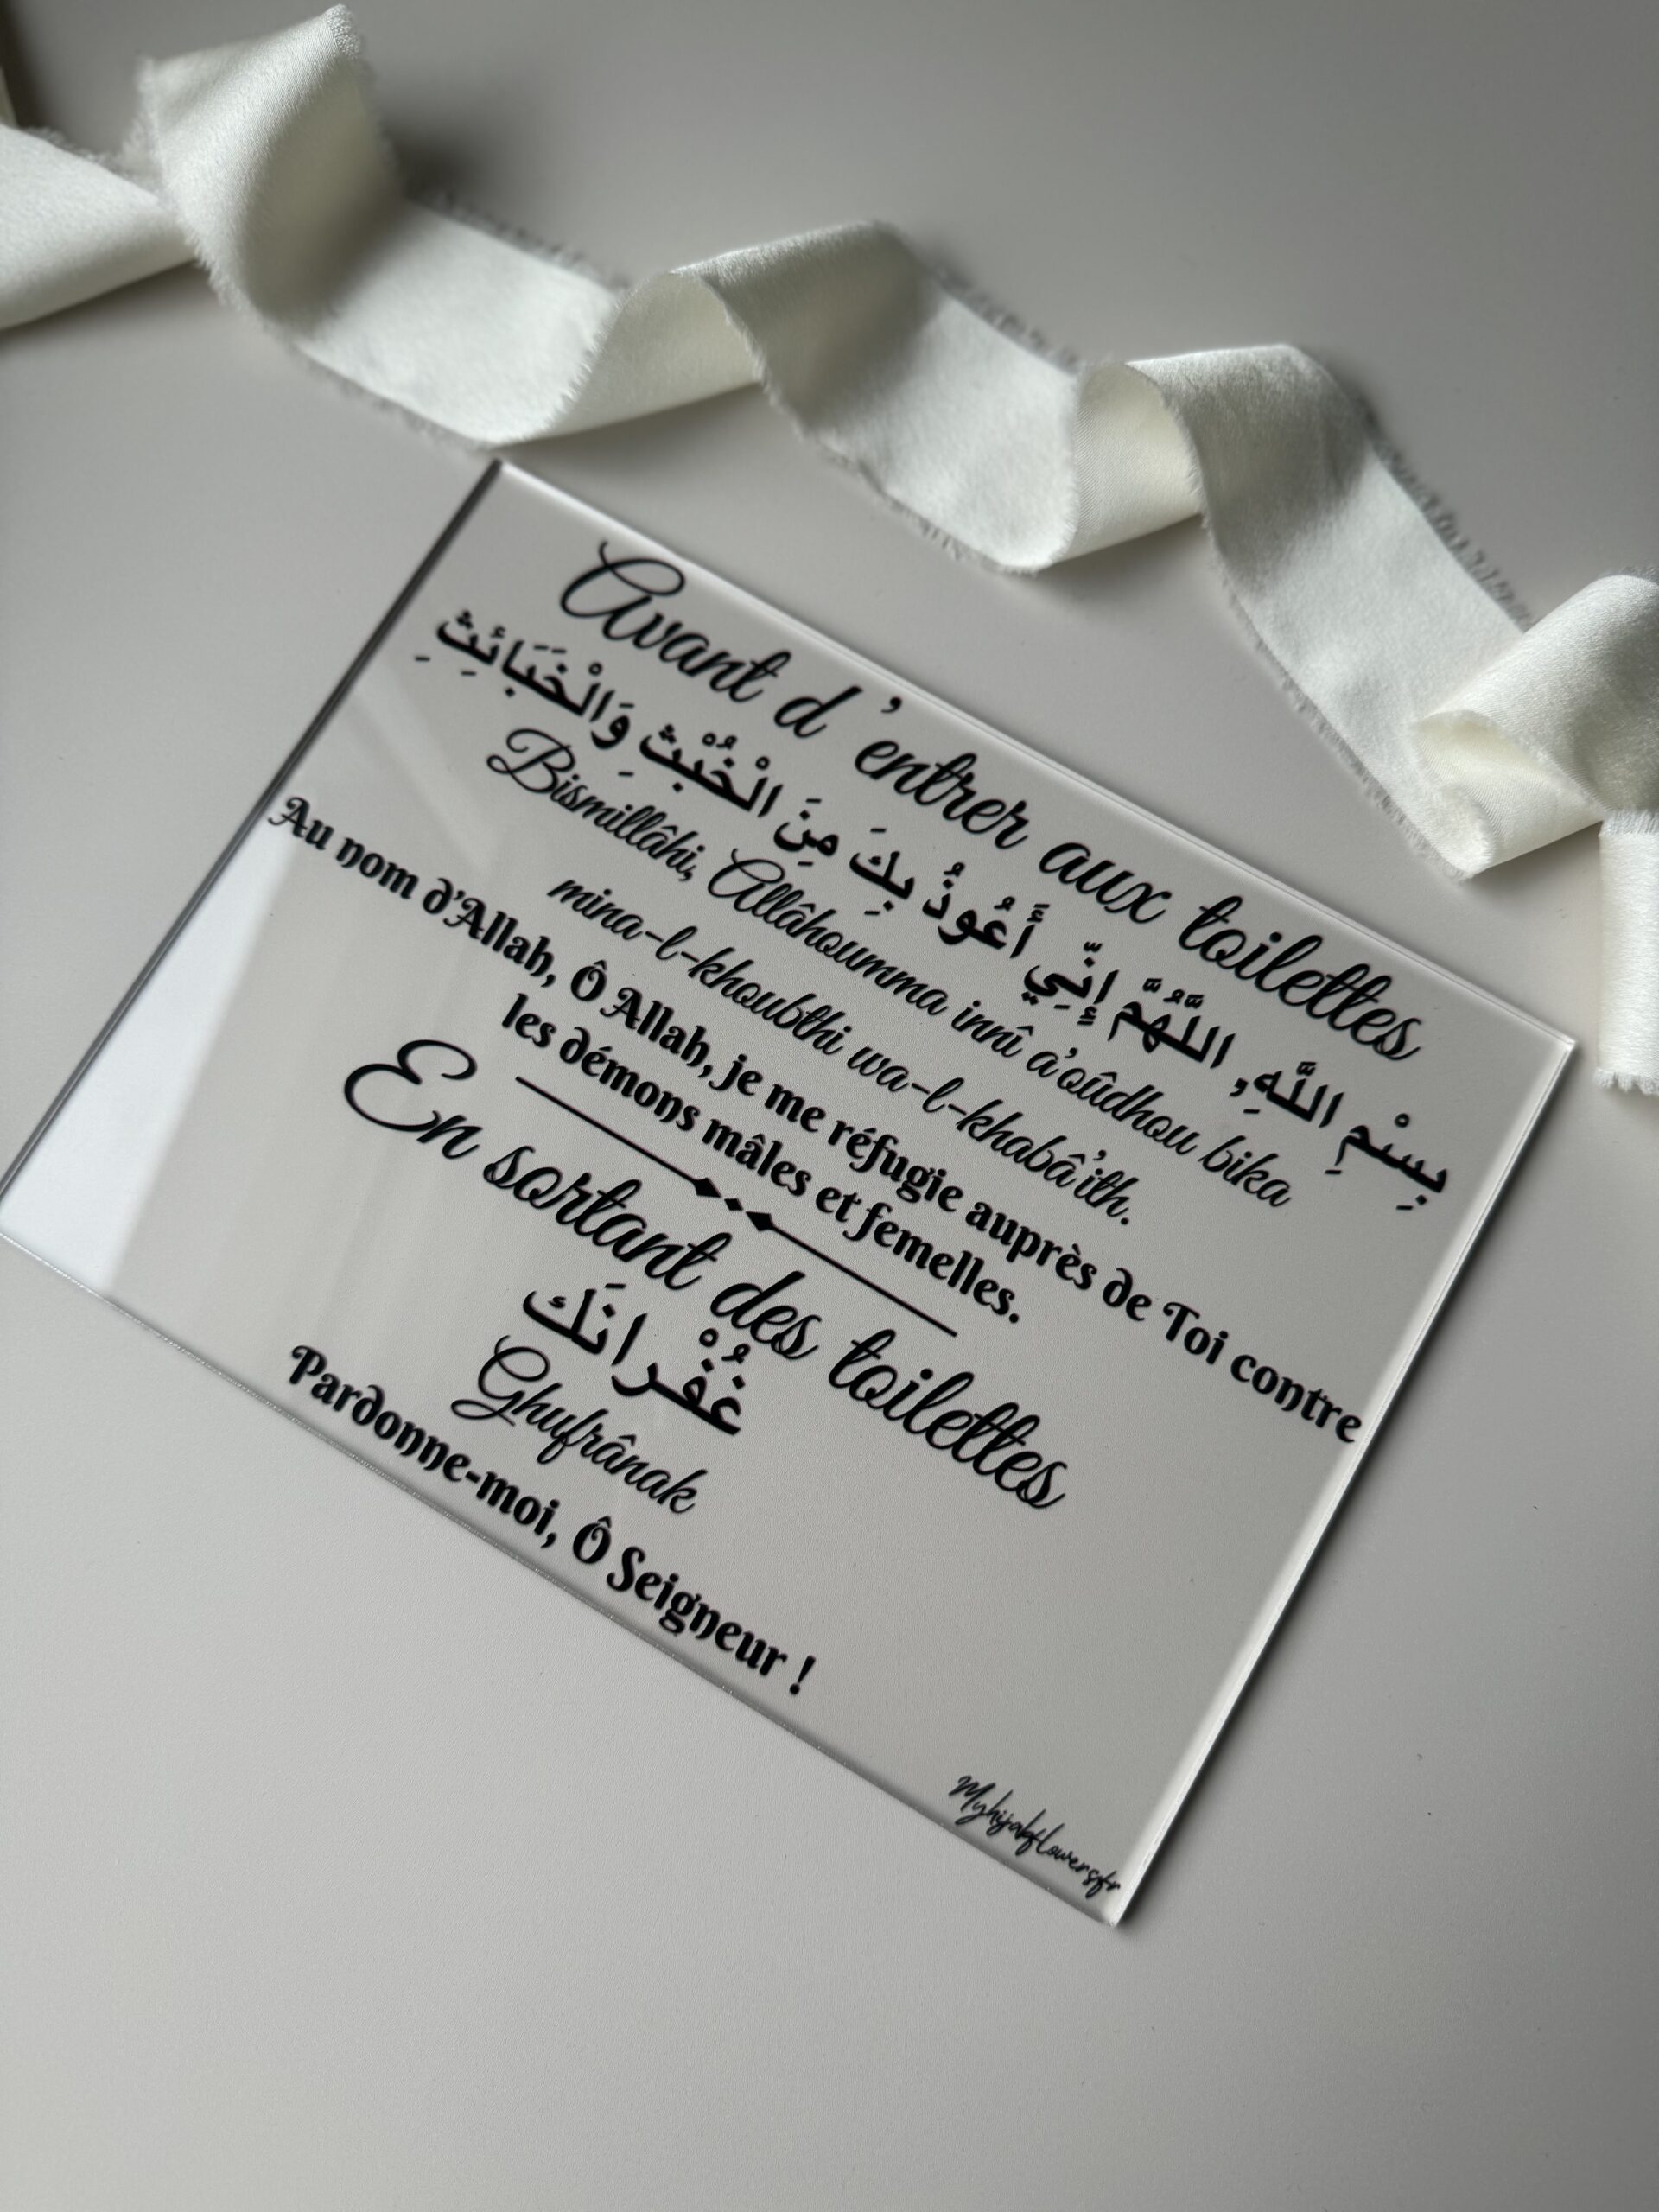 Avant d'entrer aux toilettes
بِسْمِ اللَّهِ, اللَّهُمَّ إِنِّي أَعُوذُ بِكَ مِنَ الْخُبْثِ وَالْخَبَائِثِ
Bismillâhi, Allâhoumma innî a'oûdhou bika
mina-l-khoubthi wa-l-khabâ'ith.
Au nom d'Allah, Ô Allah, je me réfugie auprès de Toi contre
les démons mâles et femelles.
En sortant des toilettes
غُفْرانَك
Ghufrânak
Pardonne-moi, Ô Seigneur !
Myhijabflowersfr